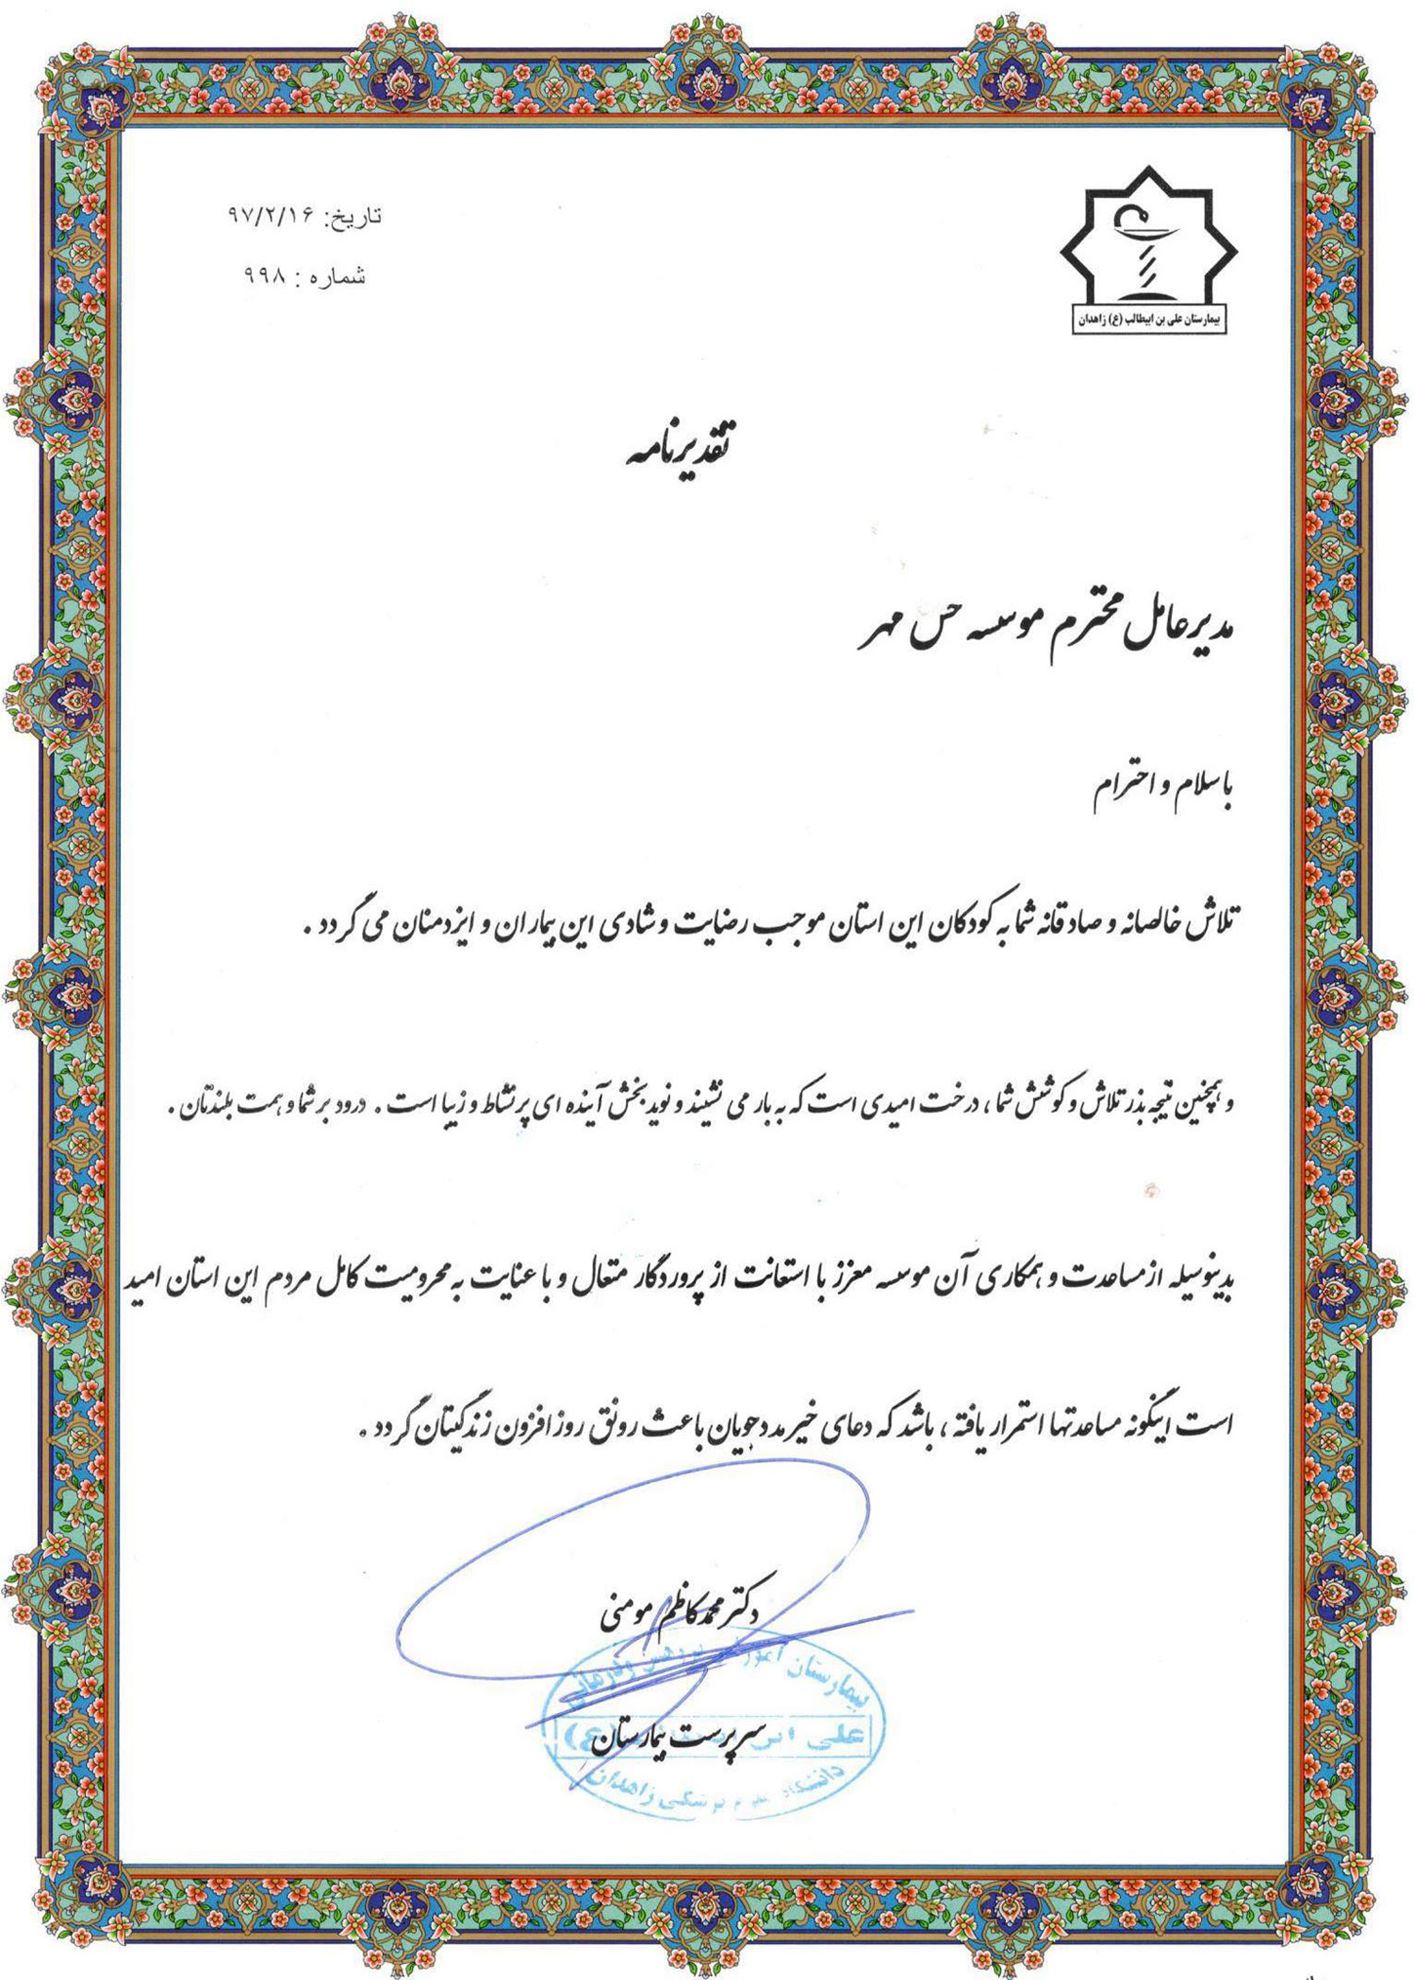 تاریخ: ۹۷/۲/۱۶
شماره : ۹۹۸
بیمارستان علی بن ابیطالب (ع) زاهدان
تقدیرنامه
مدیرعامل محترم موسسه حس مهر
با سلام و احترام
تلاش خالصانه و صادقانه شما به کودکان این استان موجب رضایت و شادی این بیماران و ایزدمنان می گردد .
و همچنین نتیجه بذر تلاش و کوشش شما ، درخت امیدی است که به بار می نشیند و نوید بخش آینده ای پر نشاط و زیبا است . درود بر شما و همت بلندتان .
بدینوسیله از مساعدت و همکاری آن موسسه معزز با استعانت از پروردگار متعال و با عنایت به محرومیت کامل مردم این استان امید
است اینگونه مساعدتها استمرار یافته ، باشد که دعای خیر مددجویان باعث رونق روز افزون زندگیتان گردد .
دکتر محمدکاظم مومنی
بیمارستان
سرپرست بیمارستان
علی (ع)
پزشکی زاهدان